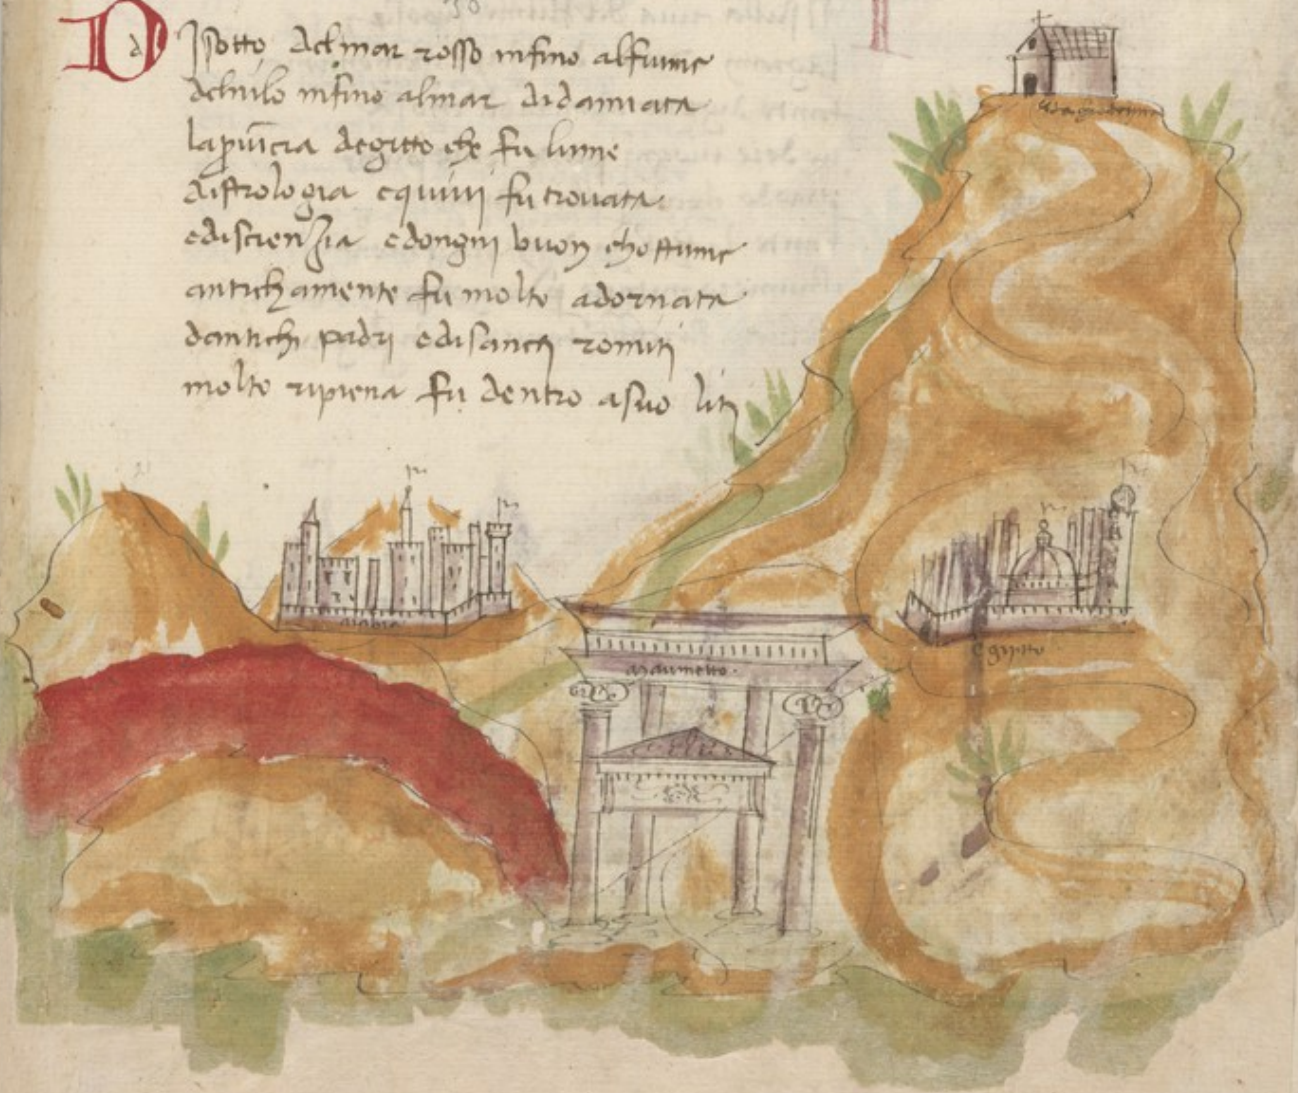 Disotto Aelmar rosso infino alfiume
delnilo infino almar didamiata
lapruicia degitto che fu lume
distrologia equiuj fu trouata
ediscienzia edongni buon chostume
antichamente fu molto adornata
dantichi padri edisantj romitj
molto ripiena fu dentro asuo litj
arabia
Egipto